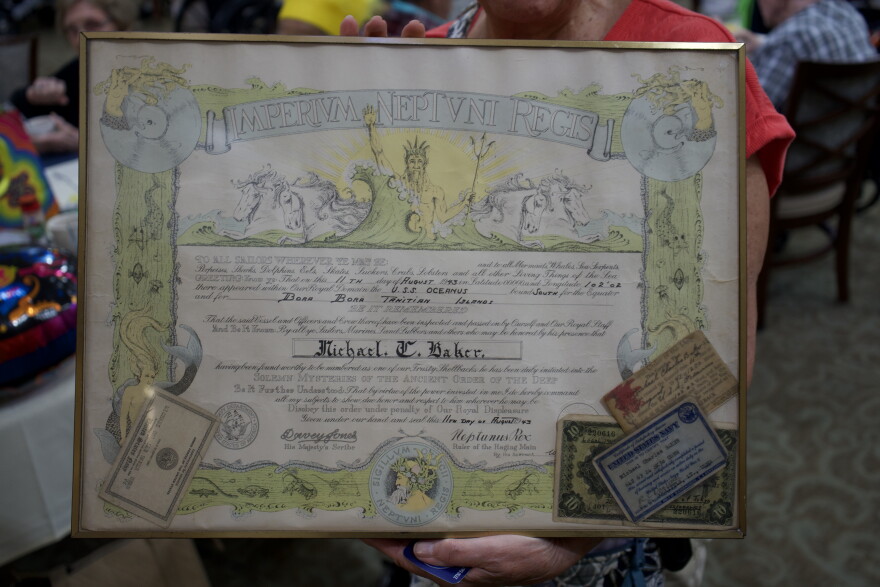 IMPERIVM NEPTVNI REGIS
TO ALL SAILORS WHEREVER YE MAY BE: and to all Mermaids, Whales, Sea Serpents,
Porpoises, Sharks, Dolphins, Eels, Skates, Suckers, Crabs, Lobsters and all other Living Things of the Sea
GREETING: Know ye: That on this 11TH day of AUGUST 1943 in Latitude 00000 and Longitude 102°02'
there appeared within Our Royal Domain the U.S.S. OCEANUS bound SOUTH for the Equator
and for BORA BORA TAHITIAN ISLANDS
BE IT REMEMBERED
That the said Vessel and Officers and Crew thereof have been inspected and passed on by Ourself and Our Royal Staff
And Be It Known: By all ye Sailors, Marines, Land Lubbers and others who may be honored by his presence that
Michael. C. Baker.
having been found worthy to be numbered as one of our Trusty Shellbacks he has been duly initiated into the
SOLEMN MYSTERIES OF THE ANCIENT ORDER OF THE DEEP
Be It Further Understood: That by virtue of the power invested in me I do hereby command
all my subjects to show due honor and respect to him wherever he may be
Disobey this order under penalty of Our Royal Displeasure
Given under our hand and seal this 11TH DAY OF AUGUST 43
Davey Jones Neptunus Rex
His Majesty's Scribe Ruler of the Raging Main
SIGILLVM NEPTVNI REGIS
UNITED STATES NAVY
10